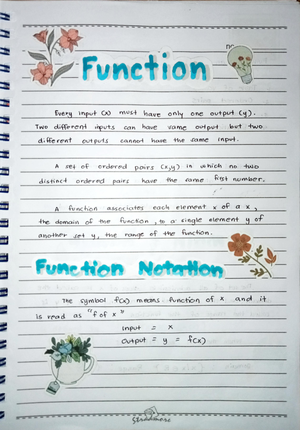 Function
Every input (x) must have only one output (y).
Two different inputs can have same output but two
different outputs cannot have the same input.
A set of ordered pairs (x,y) in which no two
distinct ordered pairs have the same first number.
A function associates each element x of a x,
the domain of the function, to a single element y of
another set y, the range of the function.
Function Notation
The symbol f(x) means function of x and it
is read as "f of x"
input = x
output = y = f(x)